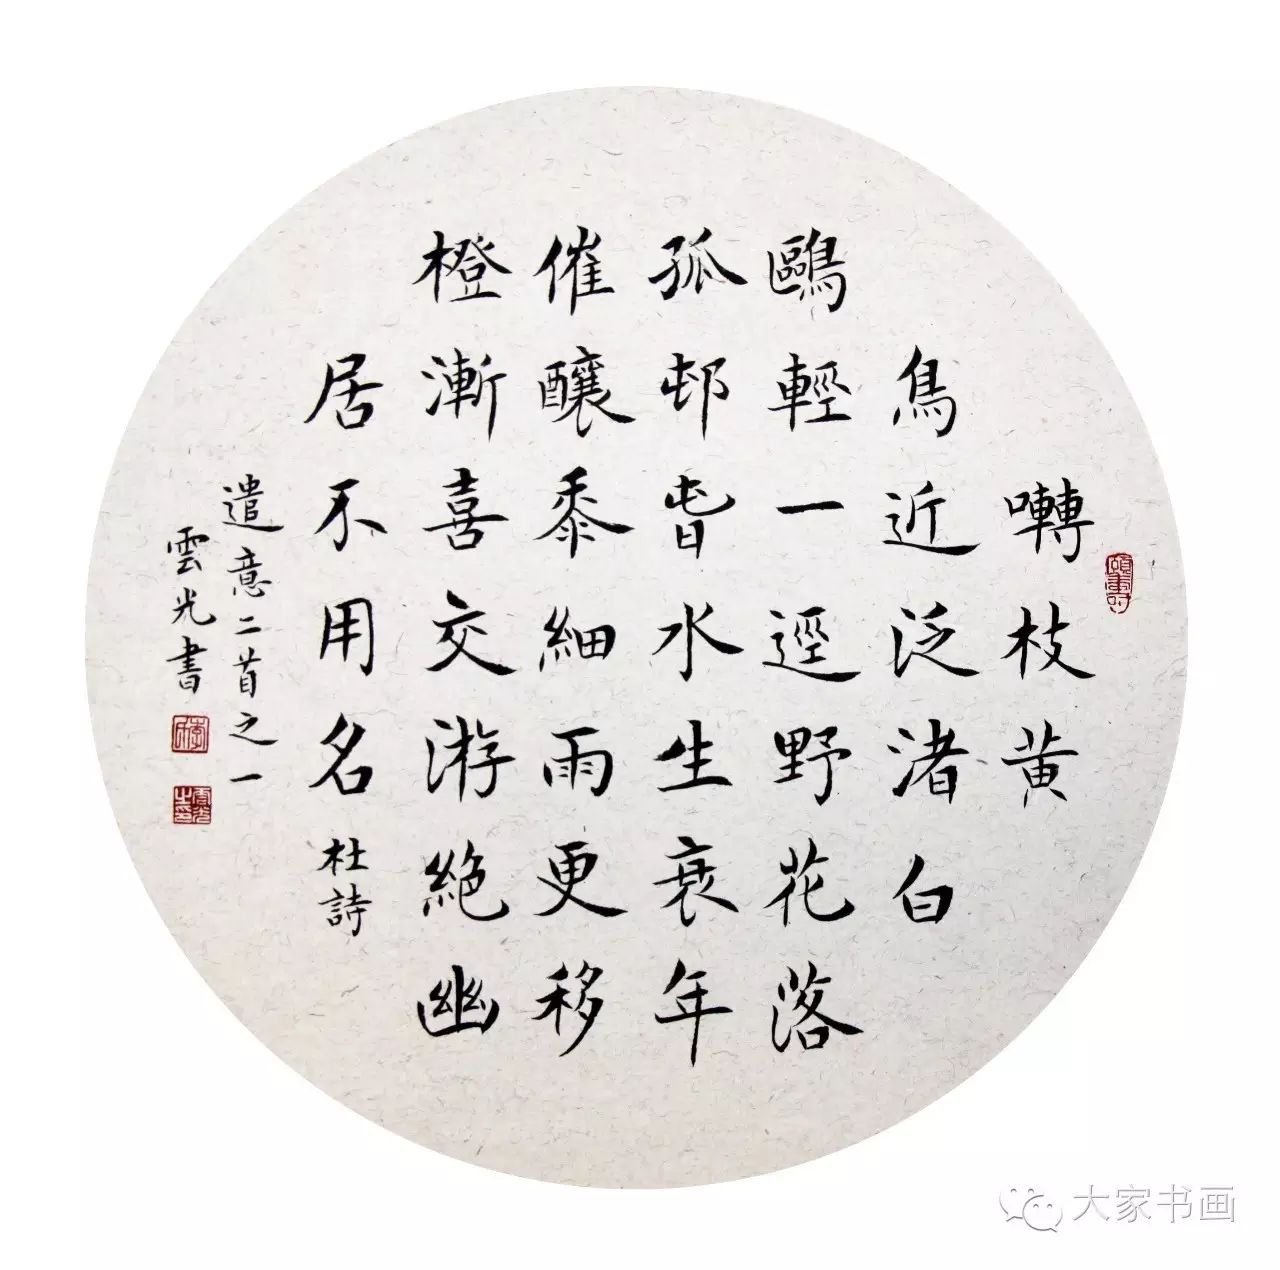 囀枝黄
鳥近泛渚白
鷗輕一逕野花落
孤邨旾水生衰年
催釀黍細雨更移
橙漸喜交游絶幽
居不用名 杜詩
遣意二首之一
雲光書
雲光之印
大家书画